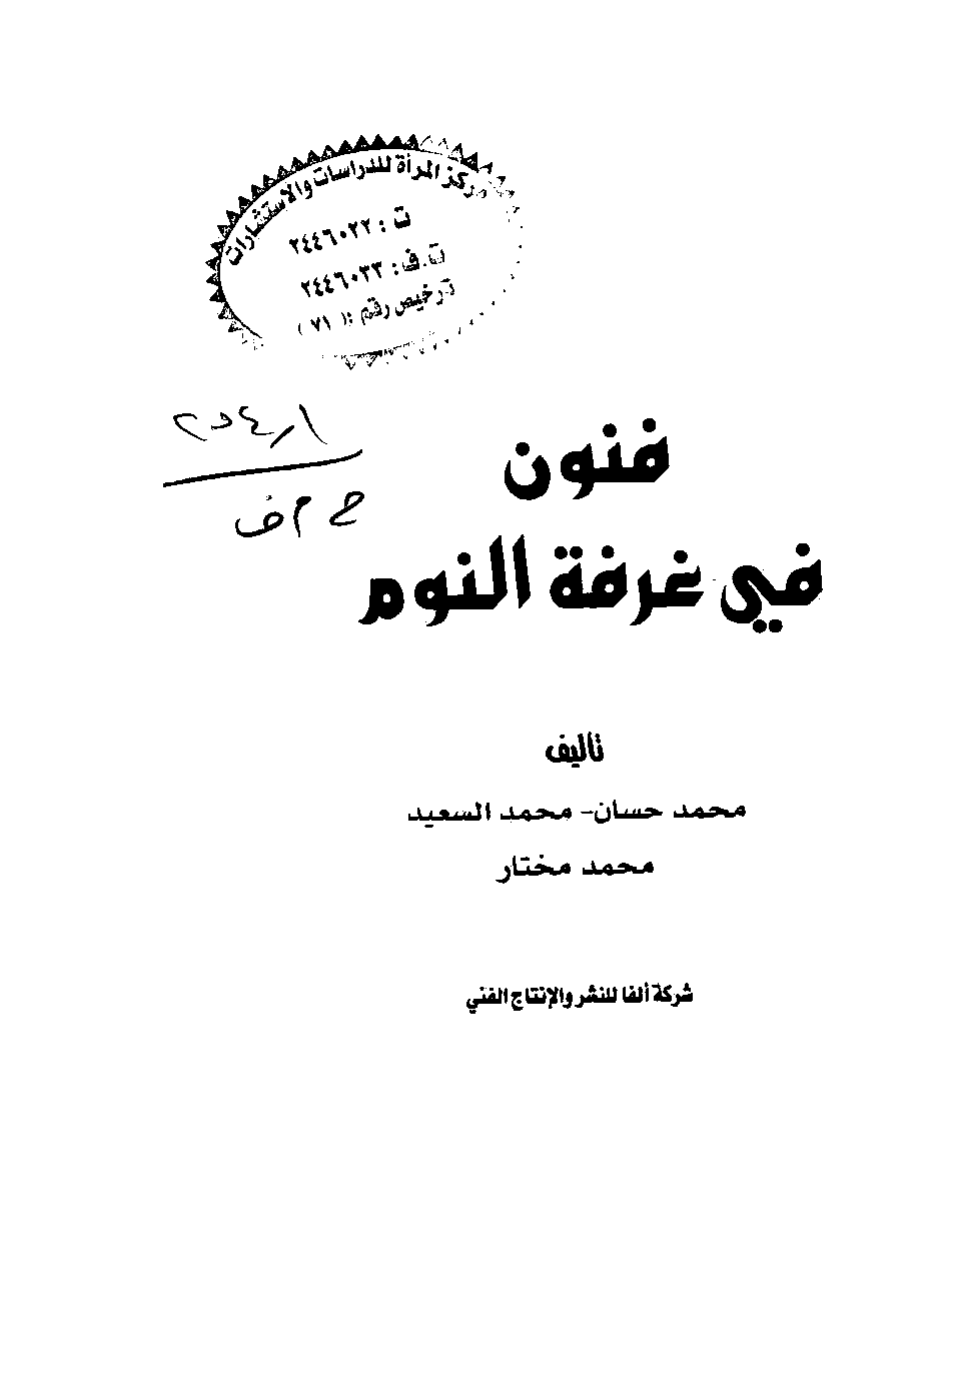 مركز المرأة للدراسات والاستشارات
ت : ٢٤٤٦٠٢٢
ت.ف : ٢٤٤٦٠٣٣
ترخيص رقم :( ٧١ )
ح م ف
فنون
في غرفة النوم
تأليف
محمد حسان- محمد السعيد
محمد مختار
شركة ألفا للنشر والإنتاج الفني